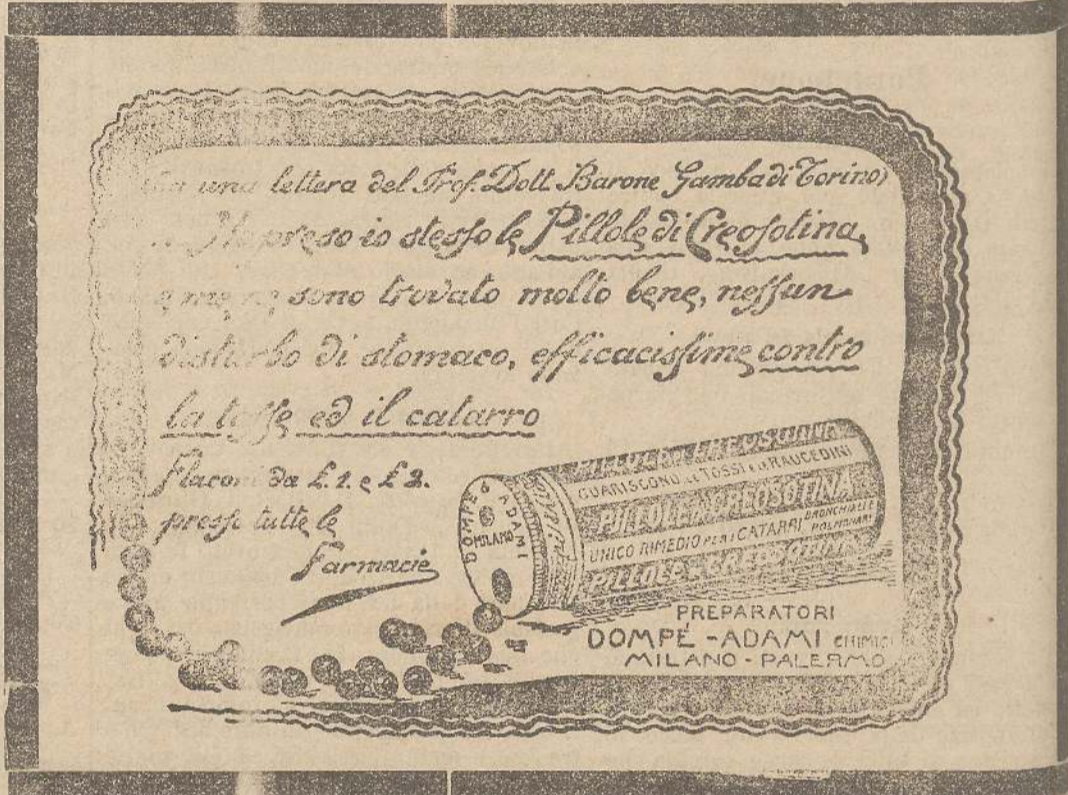 una lettera del Prof. Dott. Barone Gamba di Torino)
Ho preso io stesso le Pillole di Creosotina,
e me ne sono trovato molto bene, nessun
disturbo di stomaco, efficacissime contro
la tosse ed il catarro
Flaconi da £. 1. e £ 2.
presso tutte le
Farmacie
DOMPÉ & ADAMI
MILANO
PILLOLE DI CREOSOTINA
GUARISCONO LE TOSSI E LE RAUCEDINI
PILLOLE DI CREOSOTINA
UNICO RIMEDIO PER I CATARRI BRONCHIALI E POLMONARI
PILLOLE DI CREOSOTINA
PREPARATORI
DOMPÉ - ADAMI CHIMICI
MILANO - PALERMO